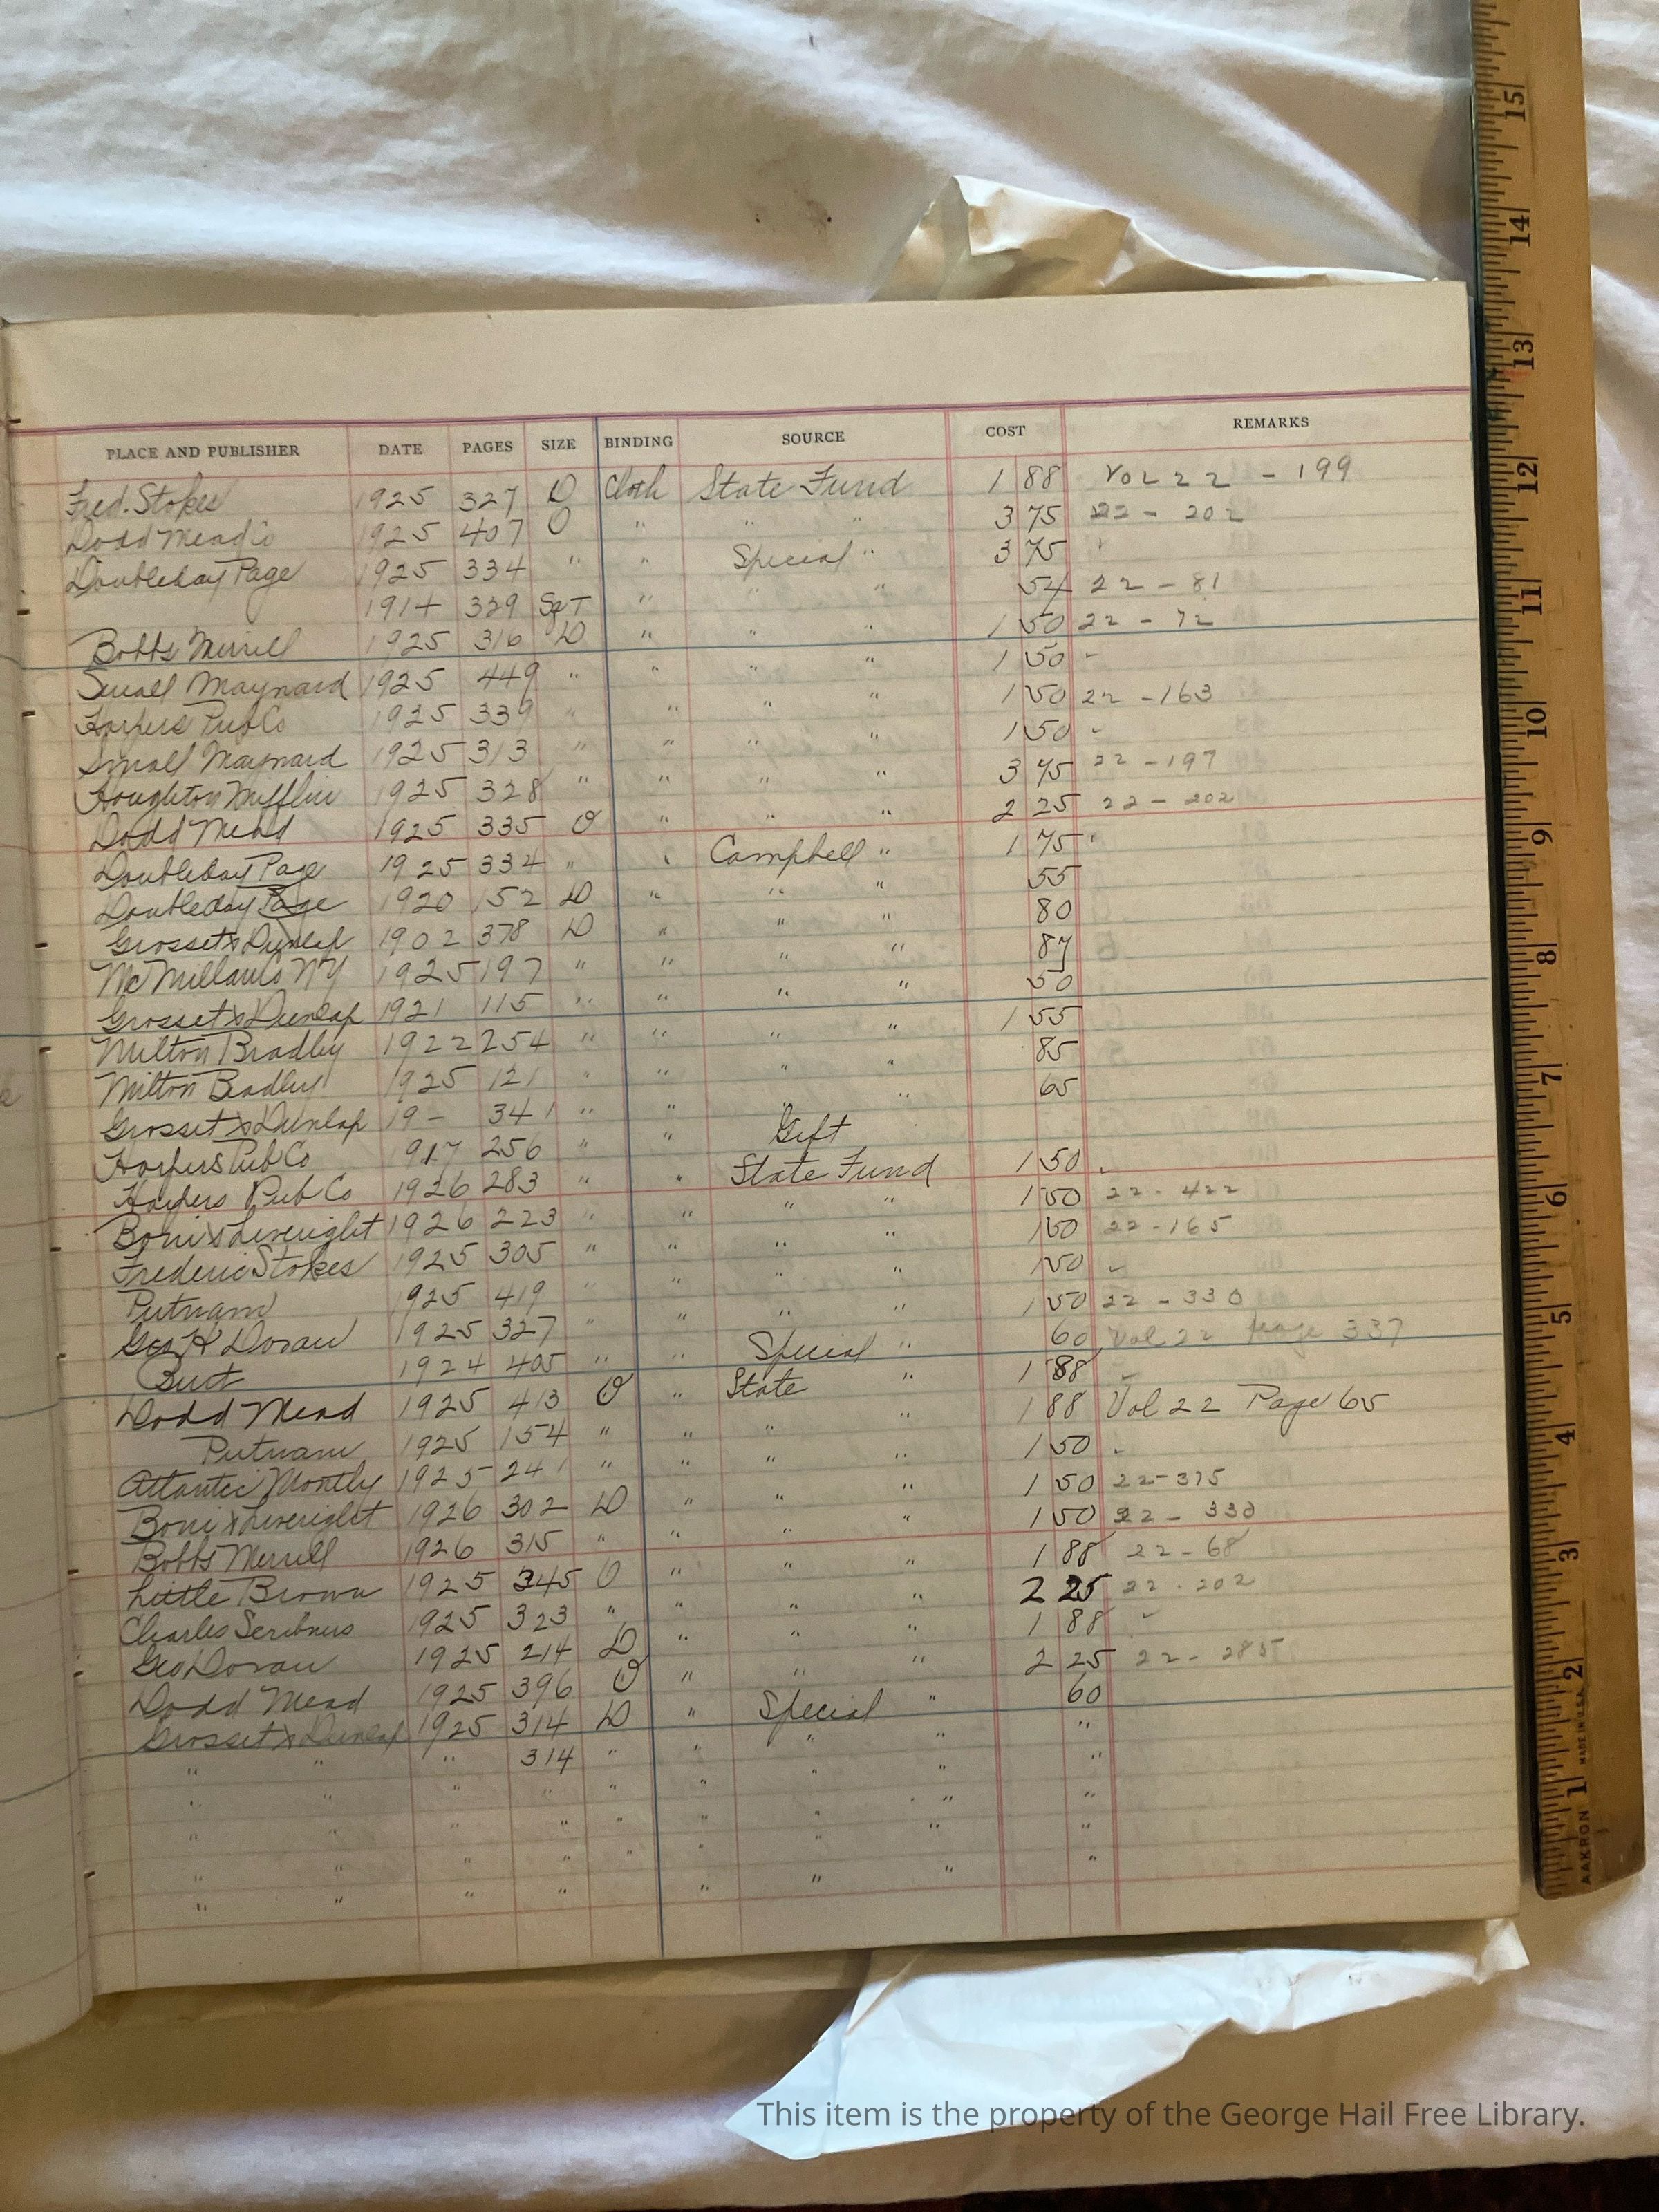 PLACE AND PUBLISHER DATE PAGES SIZE BINDING SOURCE COST REMARKS
Fred. Stokes 1925 327 D Cloth State Fund 1 88 Vol 22 - 199
Dodd Mead Co 1925 407 O " " " 3 75 22 - 202
Doubleday Page 1925 334 " " Special " 3 75
1914 329 Sq T " " " 54 22 - 81
Bobbs Merrill 1925 316 D " " " 1 50 22 - 72
Small Maynard 1925 449 " " " " 1 50 -
Harpers Pub Co 1925 339 " " " " 1 50 22 - 163
Small Maynard 1925 313 " " " " 1 50 -
Houghton Mifflin 1925 328 " " " " 3 75 22 - 197
Dodd Mead 1925 335 O " " " 2 25 22 - 202
Doubleday Page 1925 334 " " Campbell " 1 75
Doubleday Page 1920 152 D " " " 55
Grosset & Dunlap 1902 378 D " " " 80
McMillans NY 1925 197 " " " " 87
Grosset & Dunlap 1921 115 " " " " 50
Milton Bradley 1922 254 " " " " 1 55
Milton Bradley 1925 121 " " " " 85
Grosset & Dunlap 19- 341 " " " " 65
Harpers Pub Co 1917 256 " " Gift
Harpers Pub Co 1926 283 " " State Fund 1 50
Boni & Liveright 1926 223 " " " " 1 50 22 - 422
Frederic Stokes 1925 305 " " " " 1 50 22 - 165
Putnam 1925 419 " " " " 1 50 -
Geo H Doran 1925 327 " " " " 1 50 22 - 330
Burt 1924 405 " " Special " 60 Vol 22 page 337
Dodd Mead 1925 413 O " State " 1 88
Putnam 1925 154 " " " " 1 88 Vol 22 Page 65
Atlantic Montly 1925 241 " " " " 1 50
Boni & Liveright 1926 302 D " " " 1 50 22 - 375
Bobbs Merrill 1926 315 " " " " 1 50 22 - 330
Little Brown 1925 345 O " " " 1 88 22 - 68
Charles Scribners 1925 323 " " " " 2 25 22 - 202
Geo Doran 1925 214 D " " " 1 88 -
Dodd Mead 1925 396 O " " " 2 25 22 - 285
Grosset & Dunlap 1925 314 D " Special " 60
" " " 314 " " " " "
" " " " " " " " "
" " " " " " " " "
" " " " " " " "
" " " " " " " "
15
14
13
12
11
10
9
8
7
6
5
4
3
2
1
AAKRON MADE IN U.S.A.
This item is the property of the George Hail Free Library.